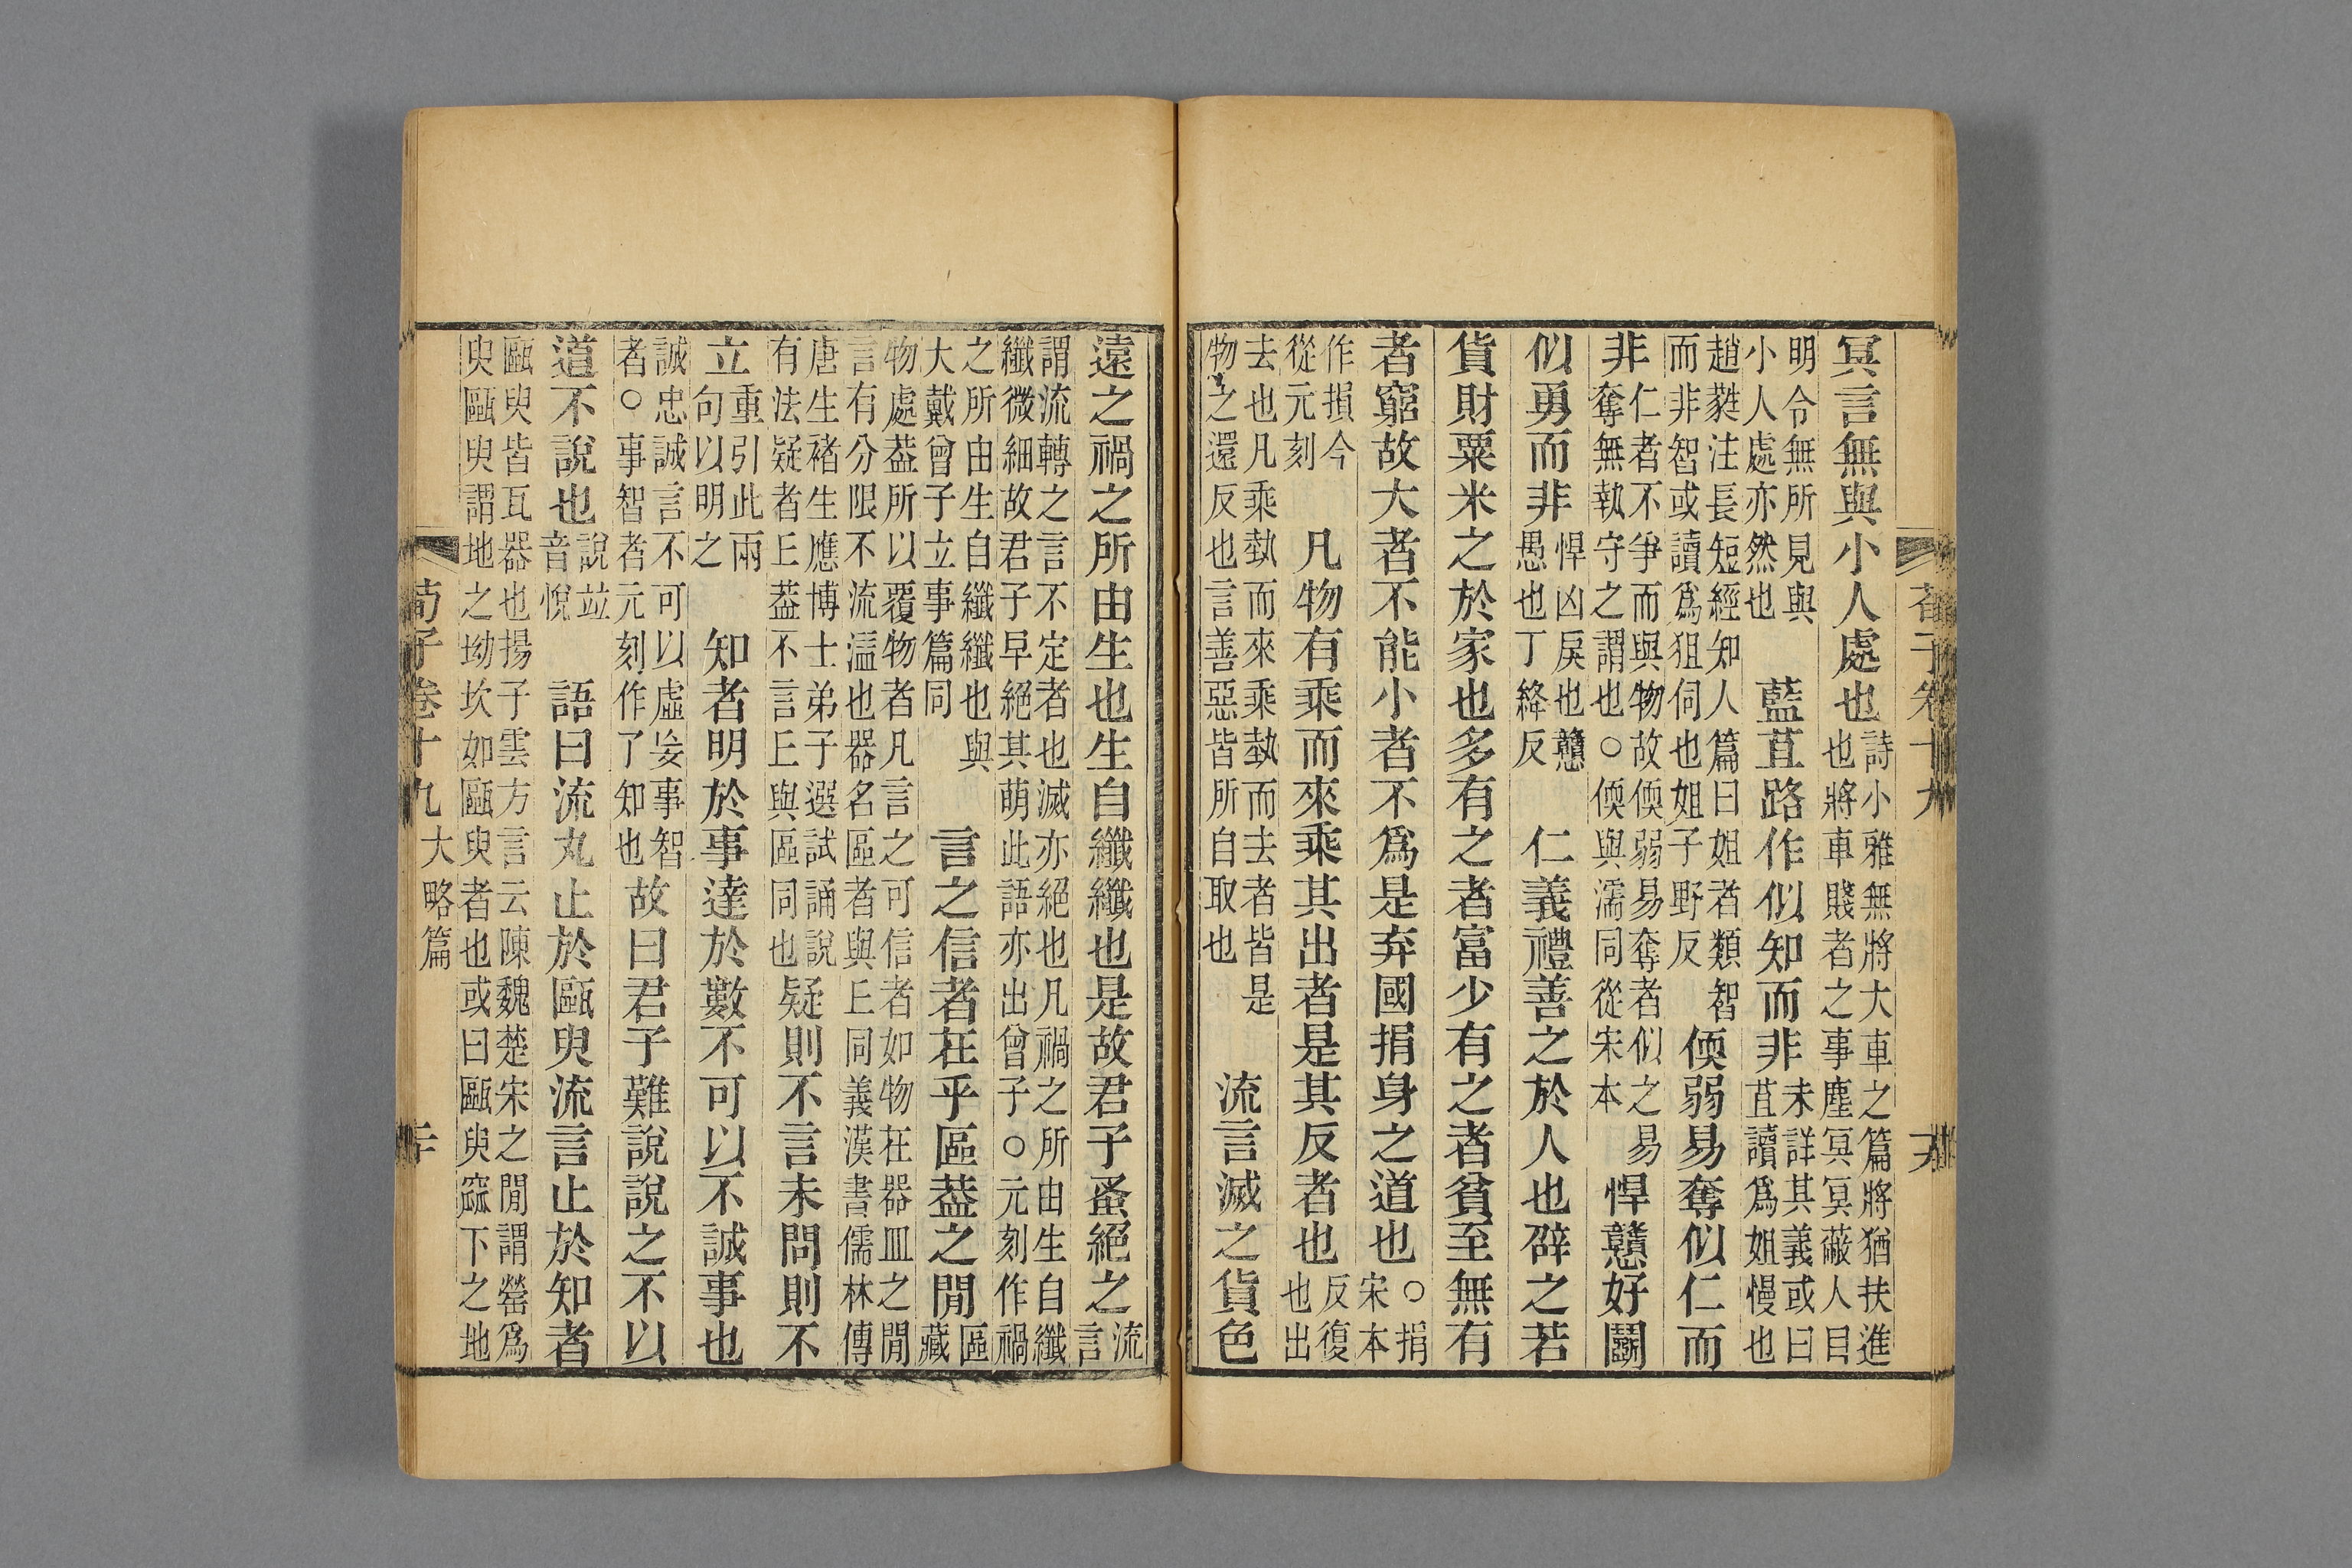 荀子卷十九
冥言無與小人處也詩小雅無將大車之篇將猶扶進也將車賤者之事塵冥冥蔽人目
明令無所見與小人處亦然也　藍苴路作似知而非未詳其義或曰苴讀爲姐慢也
趙蕤注長短經知人篇曰姐者類智而非智或讀爲狙伺也姐子野反　偄弱易奪似仁而
非仁者不爭而與物故偄弱易奪者似之易奪無執守之謂也○偄與濡同從宋本　悍戇好鬭
似勇而非悍凶戾也戇愚也丁絳反　仁義禮善之於人也辟之若
貨財粟米之於家也多有之者富少有之者貧至無有
者窮故大者不能小者不爲是弃國捐身之道也○捐宋本
作損今從元刻　凡物有乘而來乘其出者是其反者也反復也出
去也凡乘埶而來乘埶而去者皆是物之還反也言善惡皆所自取也　流言滅之貨色
遠之禍之所由生也生自纖纖也是故君子蚤絕之流言
謂流轉之言不定者也滅亦絕也凡禍之所由生自纖纖微細故君子早絕其萌此語亦出曾子○元刻作禍
之所由生自纖纖也與大戴曾子立事篇同　言之信者在乎區葢之閒區藏
物處葢所以覆物者凡言之可信者如物在器皿之閒言有分限不流溢也器名區者與丘同義漢書儒林傳
唐生褚生應博士弟子選試誦說有法疑者丘葢不言丘與區同也　疑則不言未問則不
立重引此兩句以明之　知者明於事達於數不可以不誠事也
誠忠誠言不可以虛妄事智者○事智者元刻作了知也　故曰君子難說說之不以
道不說也說竝音悅　語曰流丸止於甌臾流言止於知者
甌臾皆瓦器也揚子雲方言云陳魏楚宋之閒謂罃爲臾甌臾謂地之坳坎如甌臾者也或曰甌臾窳下之地
荀子卷十九　大略篇　二十